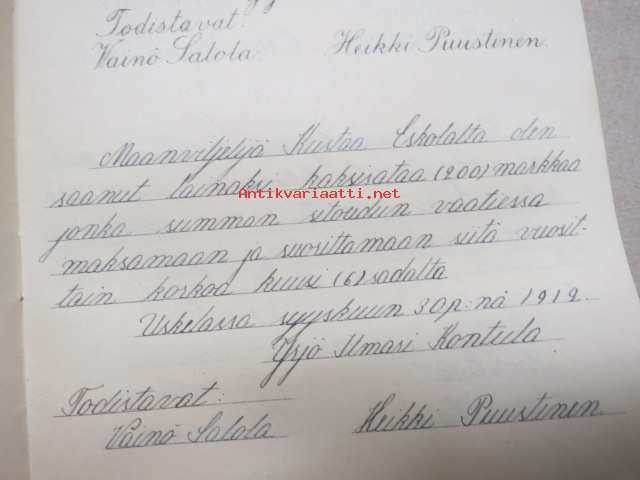 Todistavat.
Väinö Salola. Heikki Puustinen.
Maanviljelijä Kustaa Eskolalta olen
saanut lainaksi kaksisataa (200) markkaa
Antikvariaatti.net
jonka summan sitoudun vaatiessa
maksamaan ja suorittamaan siitä vuosit-
tain korkoa kuusi (6) sadalta
Uskelassa syyskuun 30 p:nä 1912.
Yrjö Umasi Kontula
Todistavat:
Väinö Salola Heikki Puustinen